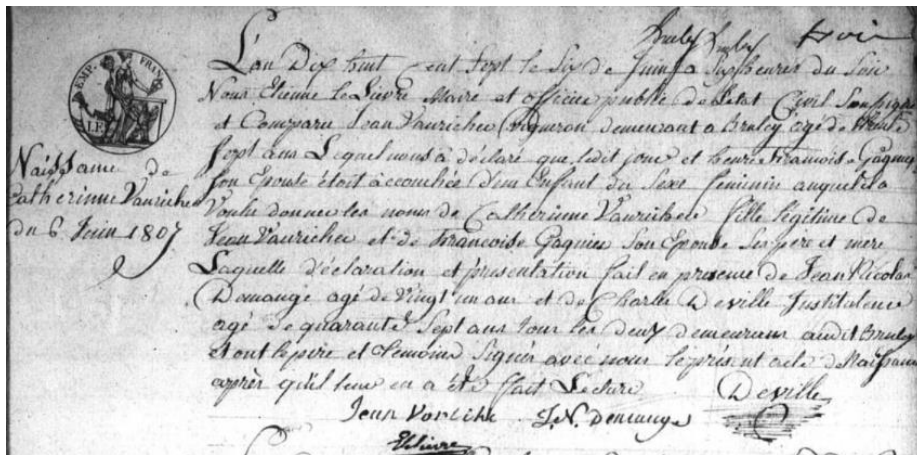 EMP. FRAN.
Bruley Bruley trois
L'an Dix huit Cent Sept le Six de Juin a Sept heures du Soir
Nous Etienne Le Lievre Maire et officier public de l'etat Civil Soussigné
et Comparu Jean Vauricher Vigneron demeurant a Bruley agé de trente
Sept ans Lequel nous à déclaré que ledit jour et heure Francoise Gagneu
Son Epouse étoit accouchée d'un Enfant du Sexe feminin auquel il a
Voulu donner les noms de Catherinne Vauricher fille légitime de
Jean Vauricher et de Francoise Gagneu Son Epouse Ses père et mere
Laquelle déclaration et présentation fait en presence de Jean Nicolas
Demange agé de Vingt un ans et de Charles Deville Instituteur
agé de quarante Sept ans tous les deux demeurans audit Bruley
et ont le pere et temoins Signés avec nous le present acte de Naissance
après qu'il leur en a été fait Lecture
Deville
Jean Voriché J.N. Demange
ELelievre
Naissance de
Catherinne Vauricher
du 6 Juin 1807